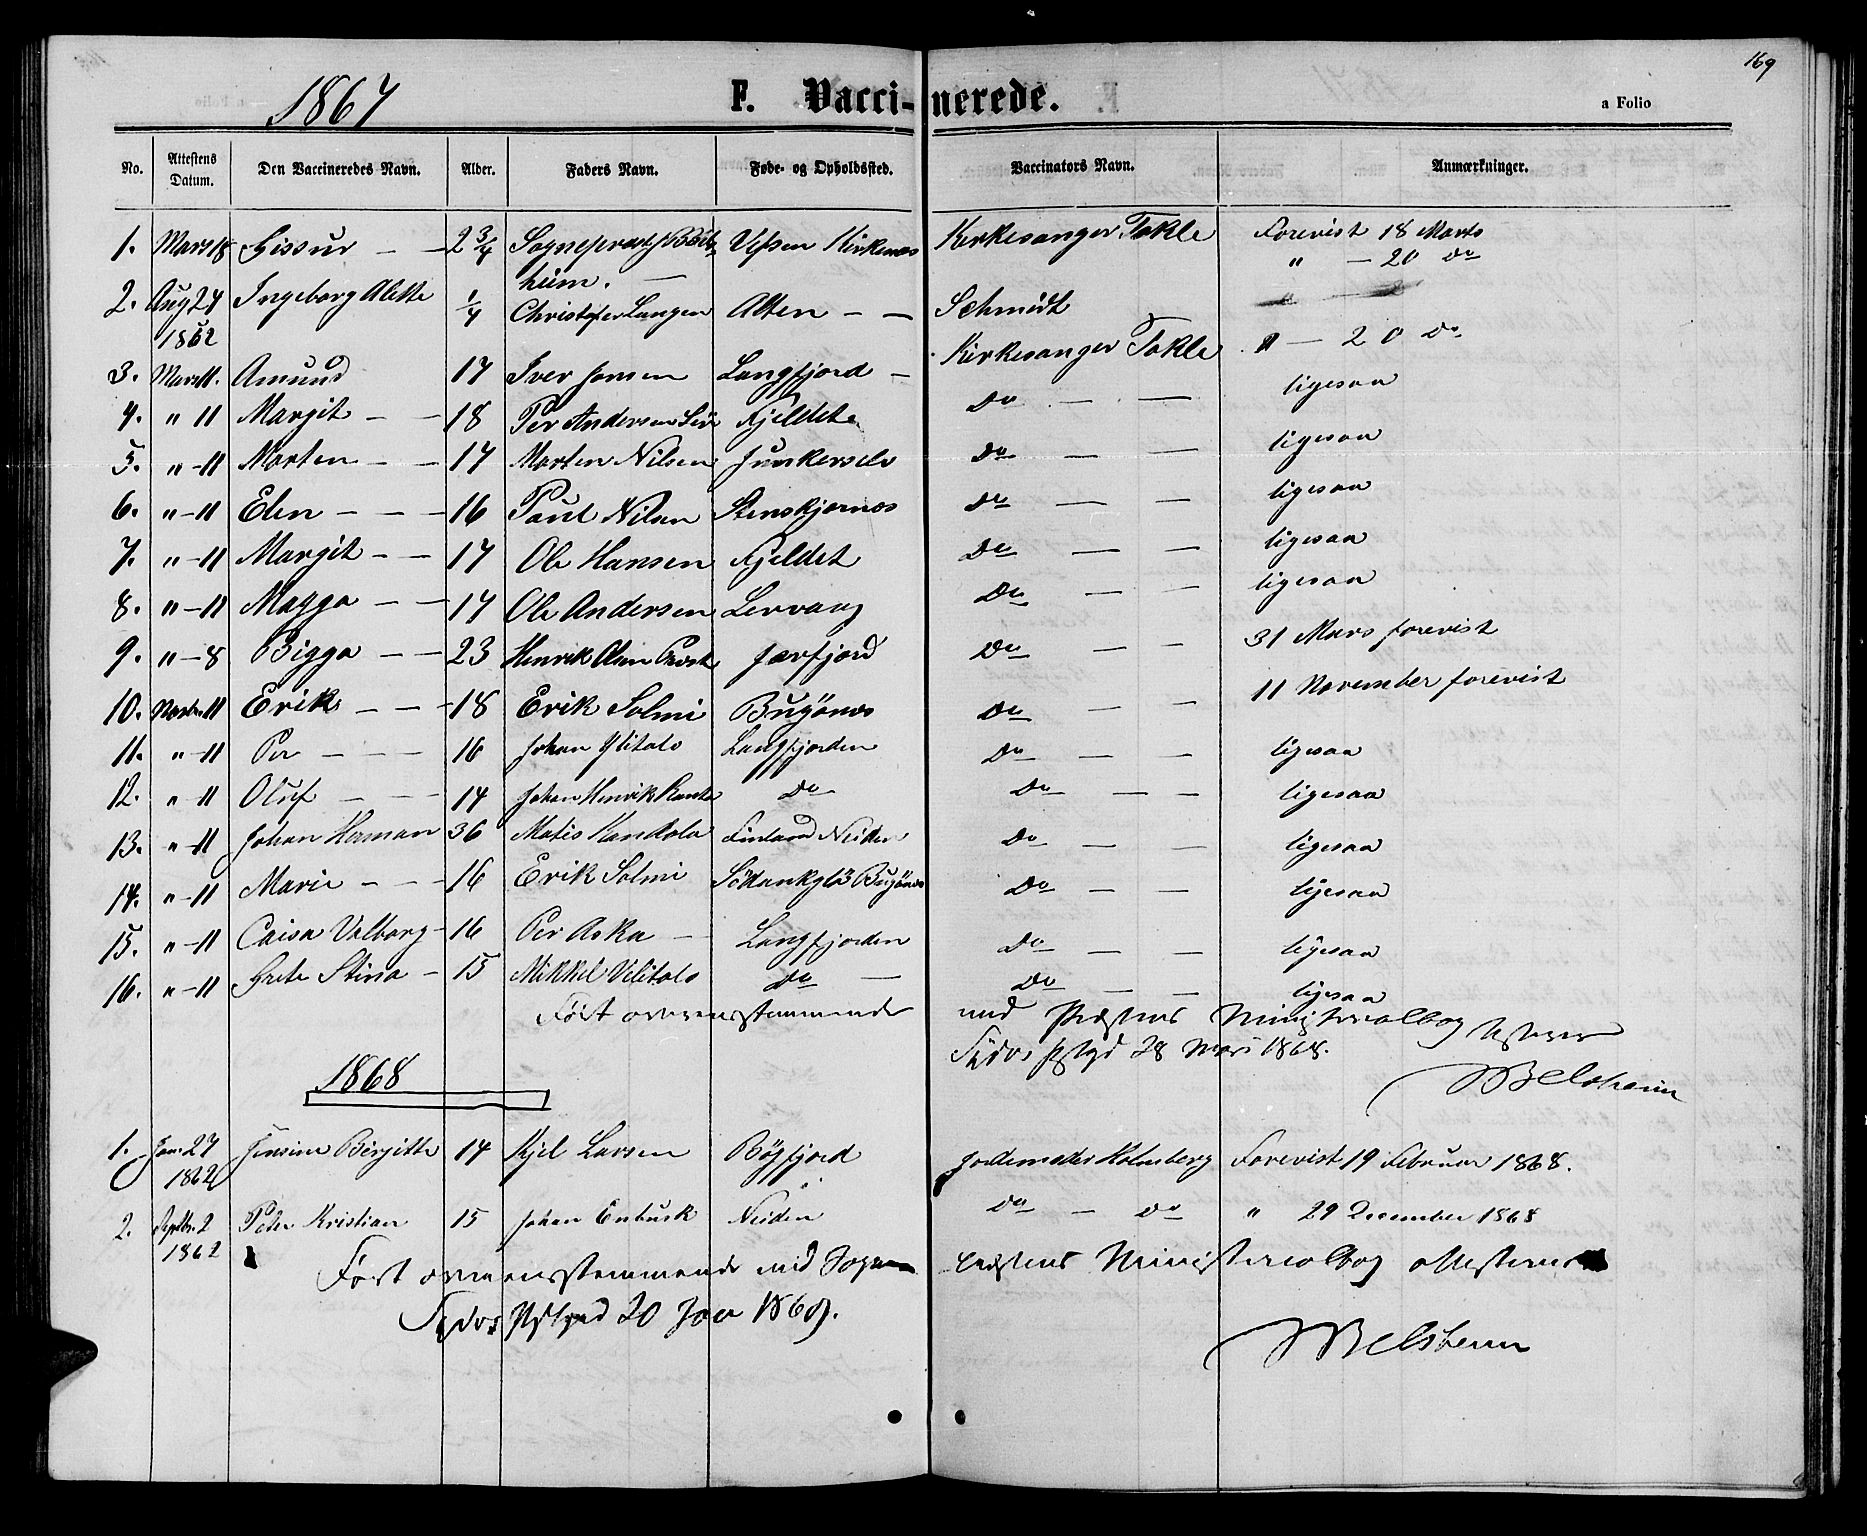 169
1867 F. Vacci-nerede. a Folio
No. Attestens Datum. Den Vaccineredes Navn. Alder. Faders Navn. Føde- og Opholdssted. Vaccinators Navn. Anmærkninger.
1. Mars 18 Gissur — 2 3/4 Sognepræst J Bels- Vefsen Kirkenes Kirkesanger Tokle Forevist 18 Marts
heim. — " — 20 do
2. Aug 24 Ingeborg Alette 1/4 Christofer Langen Alten — — Schmidt
1852 Kirkesanger Tokle " — 20 do
3. Mars 11. Amund 17 Iver Jonsen Langfjord —
4. " 11 Margit — — 18 Per Andersen Fjeldet do — — ligesaa
5. " - 11 Morten — — 17 Morten Nilsen Junkerselv do — — ligesaa
6. " - 11 Elen — — — 16 Poul Nilsen Stenskjernes do — — ligesaa
7. " - 11 Margit — — 17 Ole Hansen Fjeldet do — — ligesaa
8. " - 11 Magga — — 17 Ole Andersen Lervaag do — — ligesaa
9. " - 8 Bigga — — 23 Henrik Olsen Jarfjord do — — 31 Mars forevist
10. Novbr. 11 Erik — — — 18 Erik Solmi Bugönes do — — 11 November forevist
11. " - 11 Per — — — 16 Johan Ylitalo Langfjorden do — — ligesaa
12. " - 11 Oluf — — — 14 Johan Henrik Ranta do do — — ligesaa
13. " - 11 Johan Herman 36 Matis Handola Finland Neiden do — — ligesaa
14. " - 11 Marie — — — 16 Erik Solmi Sodankylä Bugönes do — — ligesaa
15. " - 11 Caisa Valborg — 16 Per Aska — Langfjorden do — — ligesaa
16. " - 11 Grete Stina — 15 Mikkel Vilitalo do — do — — ligesaa
Ført overensstemmende med Præstens Ministerialbog
28 Mars 1868.
JBelsheim
1868
1. Jan. 27 Jensine Birgitte 14 Kjel Larsen Bögfjord Jordemoder Holmberg Forevist 19 Februar 1868.
1862
2. Septbr. 2 Peter Kristian 15 Johan Enbusk Neiden do — do " 29 December 1868
1862
Ført overensstemmende med Sogne præstens Ministerialbog attesteres
20 Jan 1869.
JBelsheim